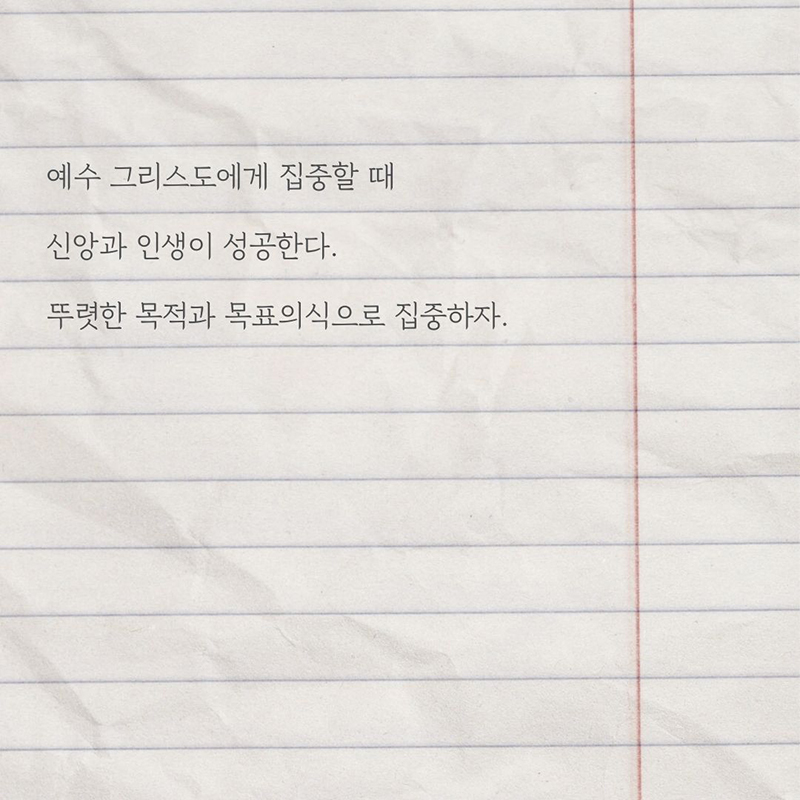 예수 그리스도에게 집중할 때
신앙과 인생이 성공한다.
뚜렷한 목적과 목표의식으로 집중하자.